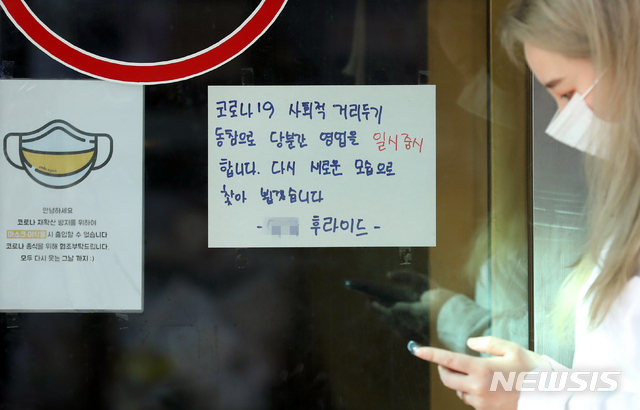 코로나19 사회적 거리두기
동참으로 당분간 영업을 일시중지
합니다. 다시 새로운 모습으로
찾아 뵙겠습니다
- 후라이드 -
안녕하세요
코로나 재확산 방지를 위하여
마스크 미착용시 출입할 수 없습니다
코로나 종식을 위해 협조부탁드립니다.
모두 다시 웃는 그날 까지 :)
NEWSIS